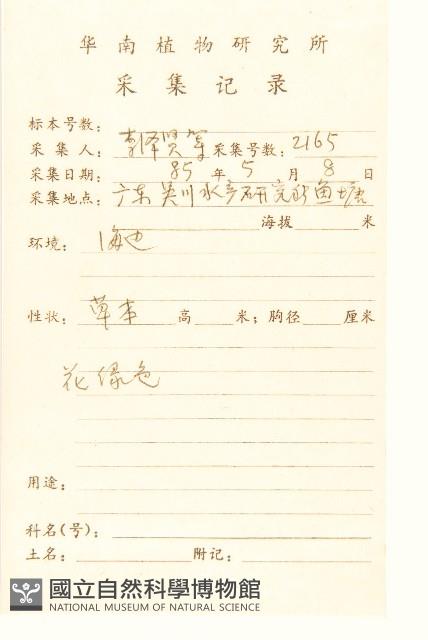 华南植物研究所
采集记录
标本号数：
采集人：李泽贤等 采集号数：2165
采集日期：85年5月8日
采集地点：广东吴川水产研究所鱼塘
海拔 米
环境：海边
性状：草本 高 米；胸径 厘米
花绿色
用途：
科名(号)：
土名： 附记：
國立自然科學博物館
NATIONAL MUSEUM OF NATURAL SCIENCE